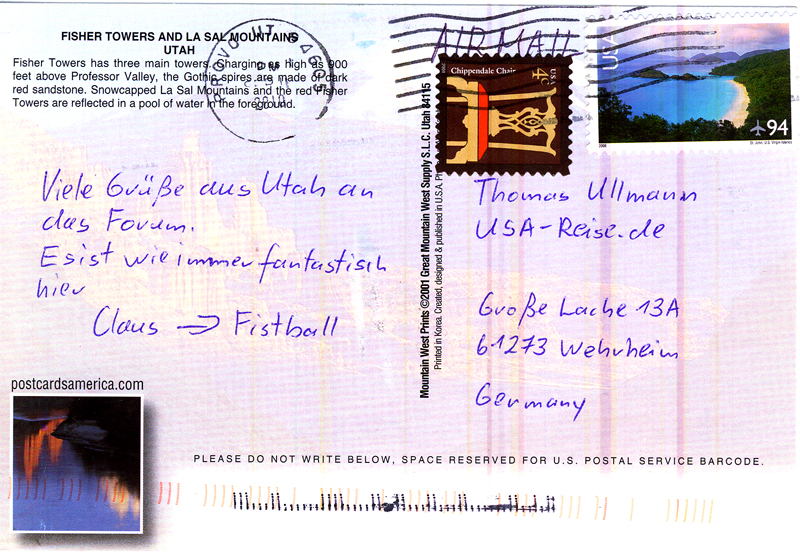 FISHER TOWERS AND LA SAL MOUNTAINS
UTAH
Fisher Towers has three main towers. Charging as high as 900
feet above Professor Valley, the Gothic spires are made of dark
red sandstone. Snowcapped La Sal Mountains and the red Fisher
Towers are reflected in a pool of water in the foreground.
PROVO UT
2010
AIR MAIL
Chippendale Chair
USA
4¢
USA
94
2008
Viele Grüße aus Utah an
das Forum.
Es ist wie immer fantastisch
hier
Claus → Fistball
postcardsamerica.com
Mountain West Prints ©2001 Great Mountain West Supply S.L.C. Utah 84115
Printed in Korea. Created, designed & published in U.S.A.
Thomas Ullmann
USA-Reise.de
Große Lache 13A
61273 Wehrheim
Germany
PLEASE DO NOT WRITE BELOW, SPACE RESERVED FOR U.S. POSTAL SERVICE BARCODE.